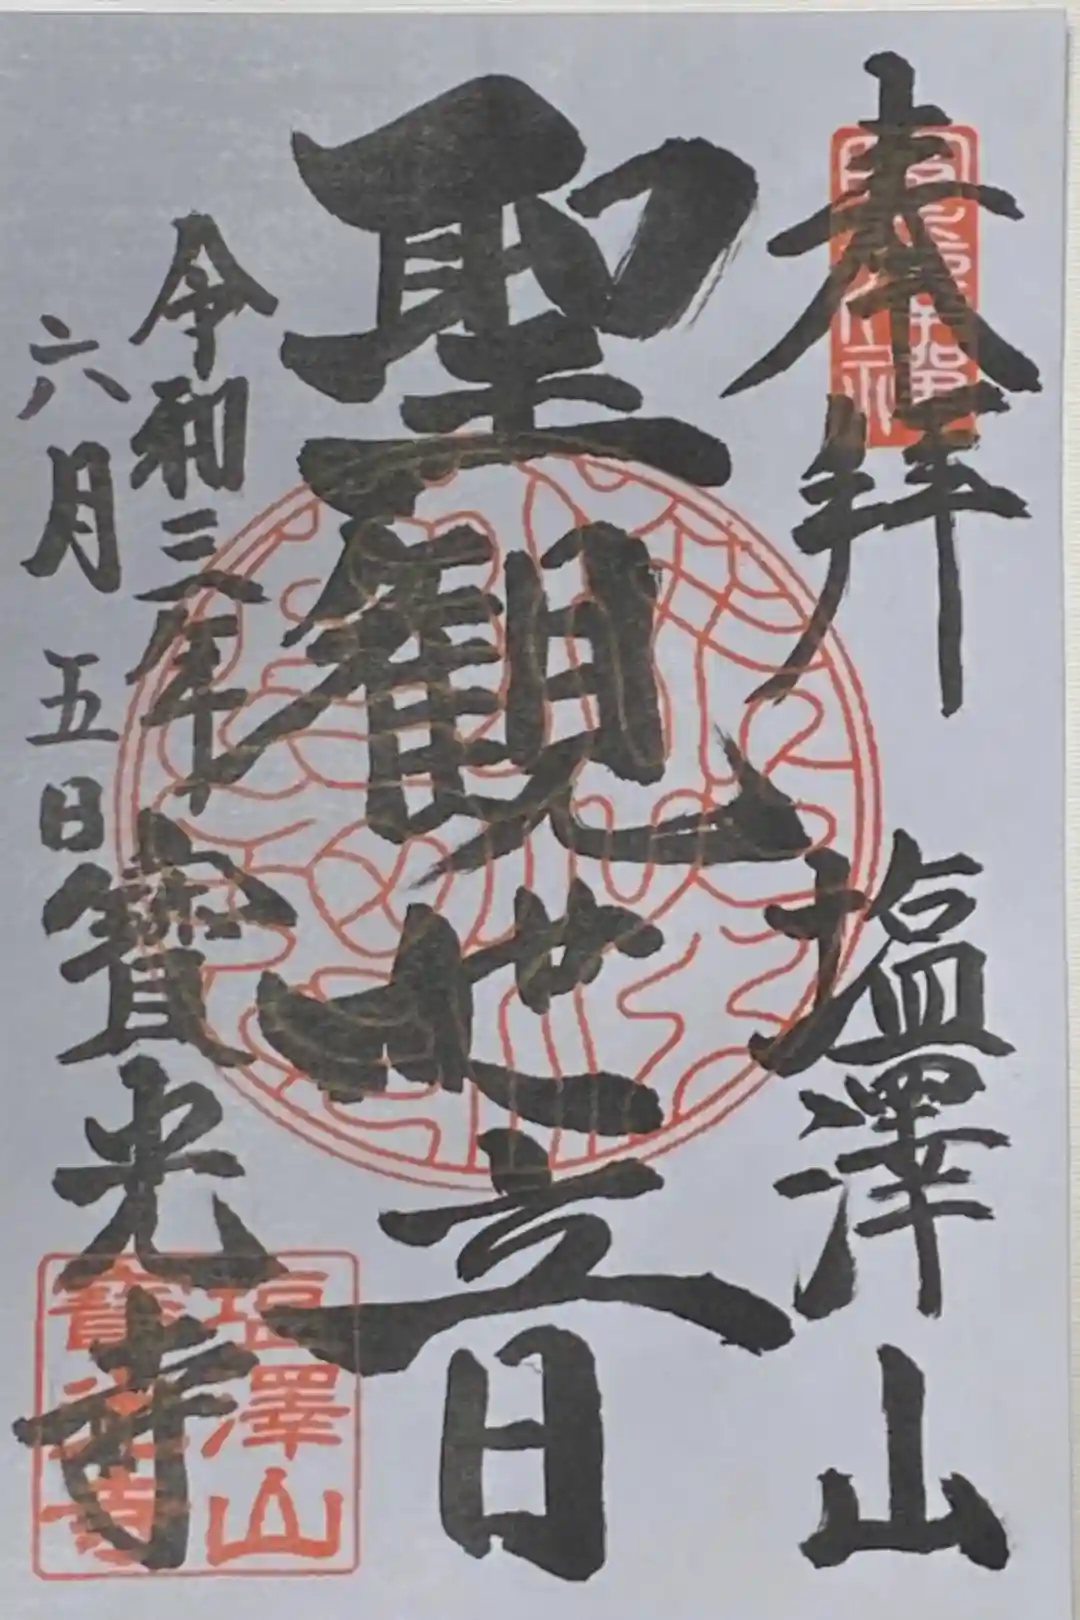 奉拝　塩澤山
聖観世音
令和三年
六月五日
寳光寺
塩澤山
寳光寺